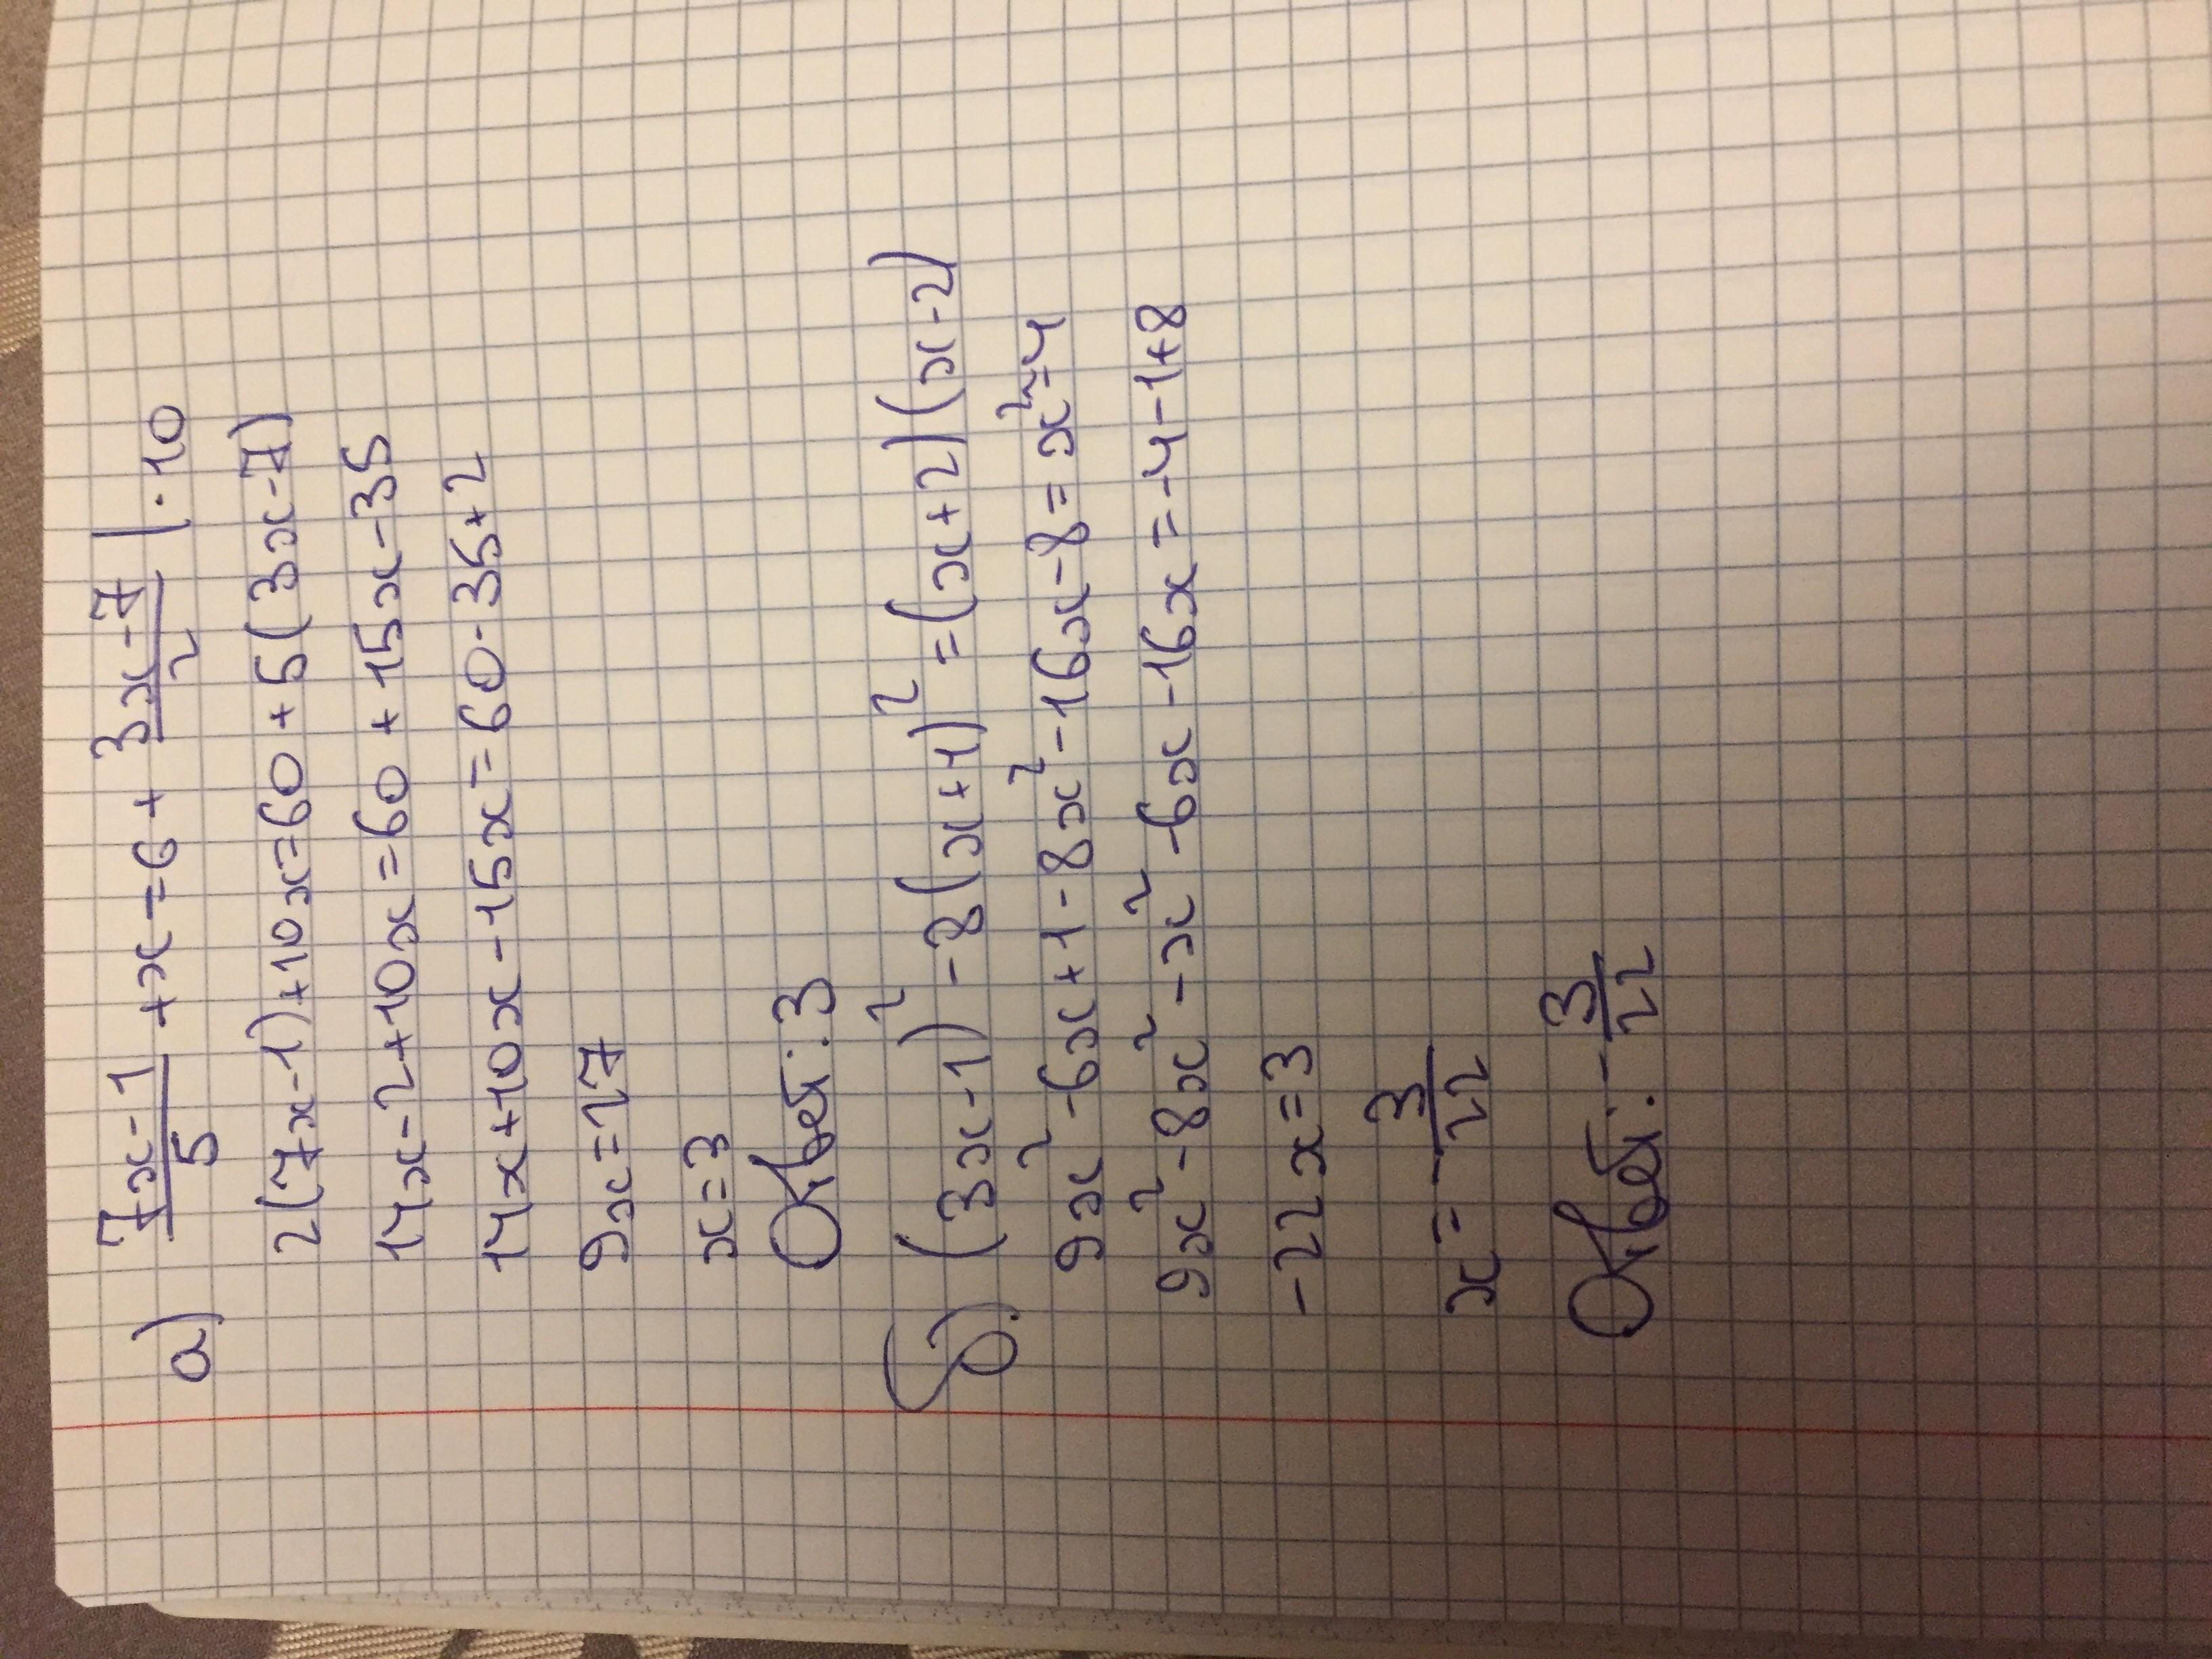 а) (7x-1)/5 + x = 6 + (3x-7)/2 | · 10
2(7x-1)+10x=60+5(3x-7)
14x-2+10x=60+15x-35
14x+10x-15x=60-35+2
9x=27
x=3
Ответ: 3
б) (3x-1)² - 8(x+1)² = (x+2)(x-2)
9x² - 6x + 1 - 8x² - 16x - 8 = x² - 4
9x² - 8x² - x² - 6x - 16x = -4 - 1 + 8
-22x=3
x = - 3/22
Ответ: - 3/22